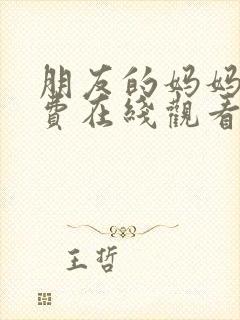 朋友的妈妈
费在线觀看
王哲